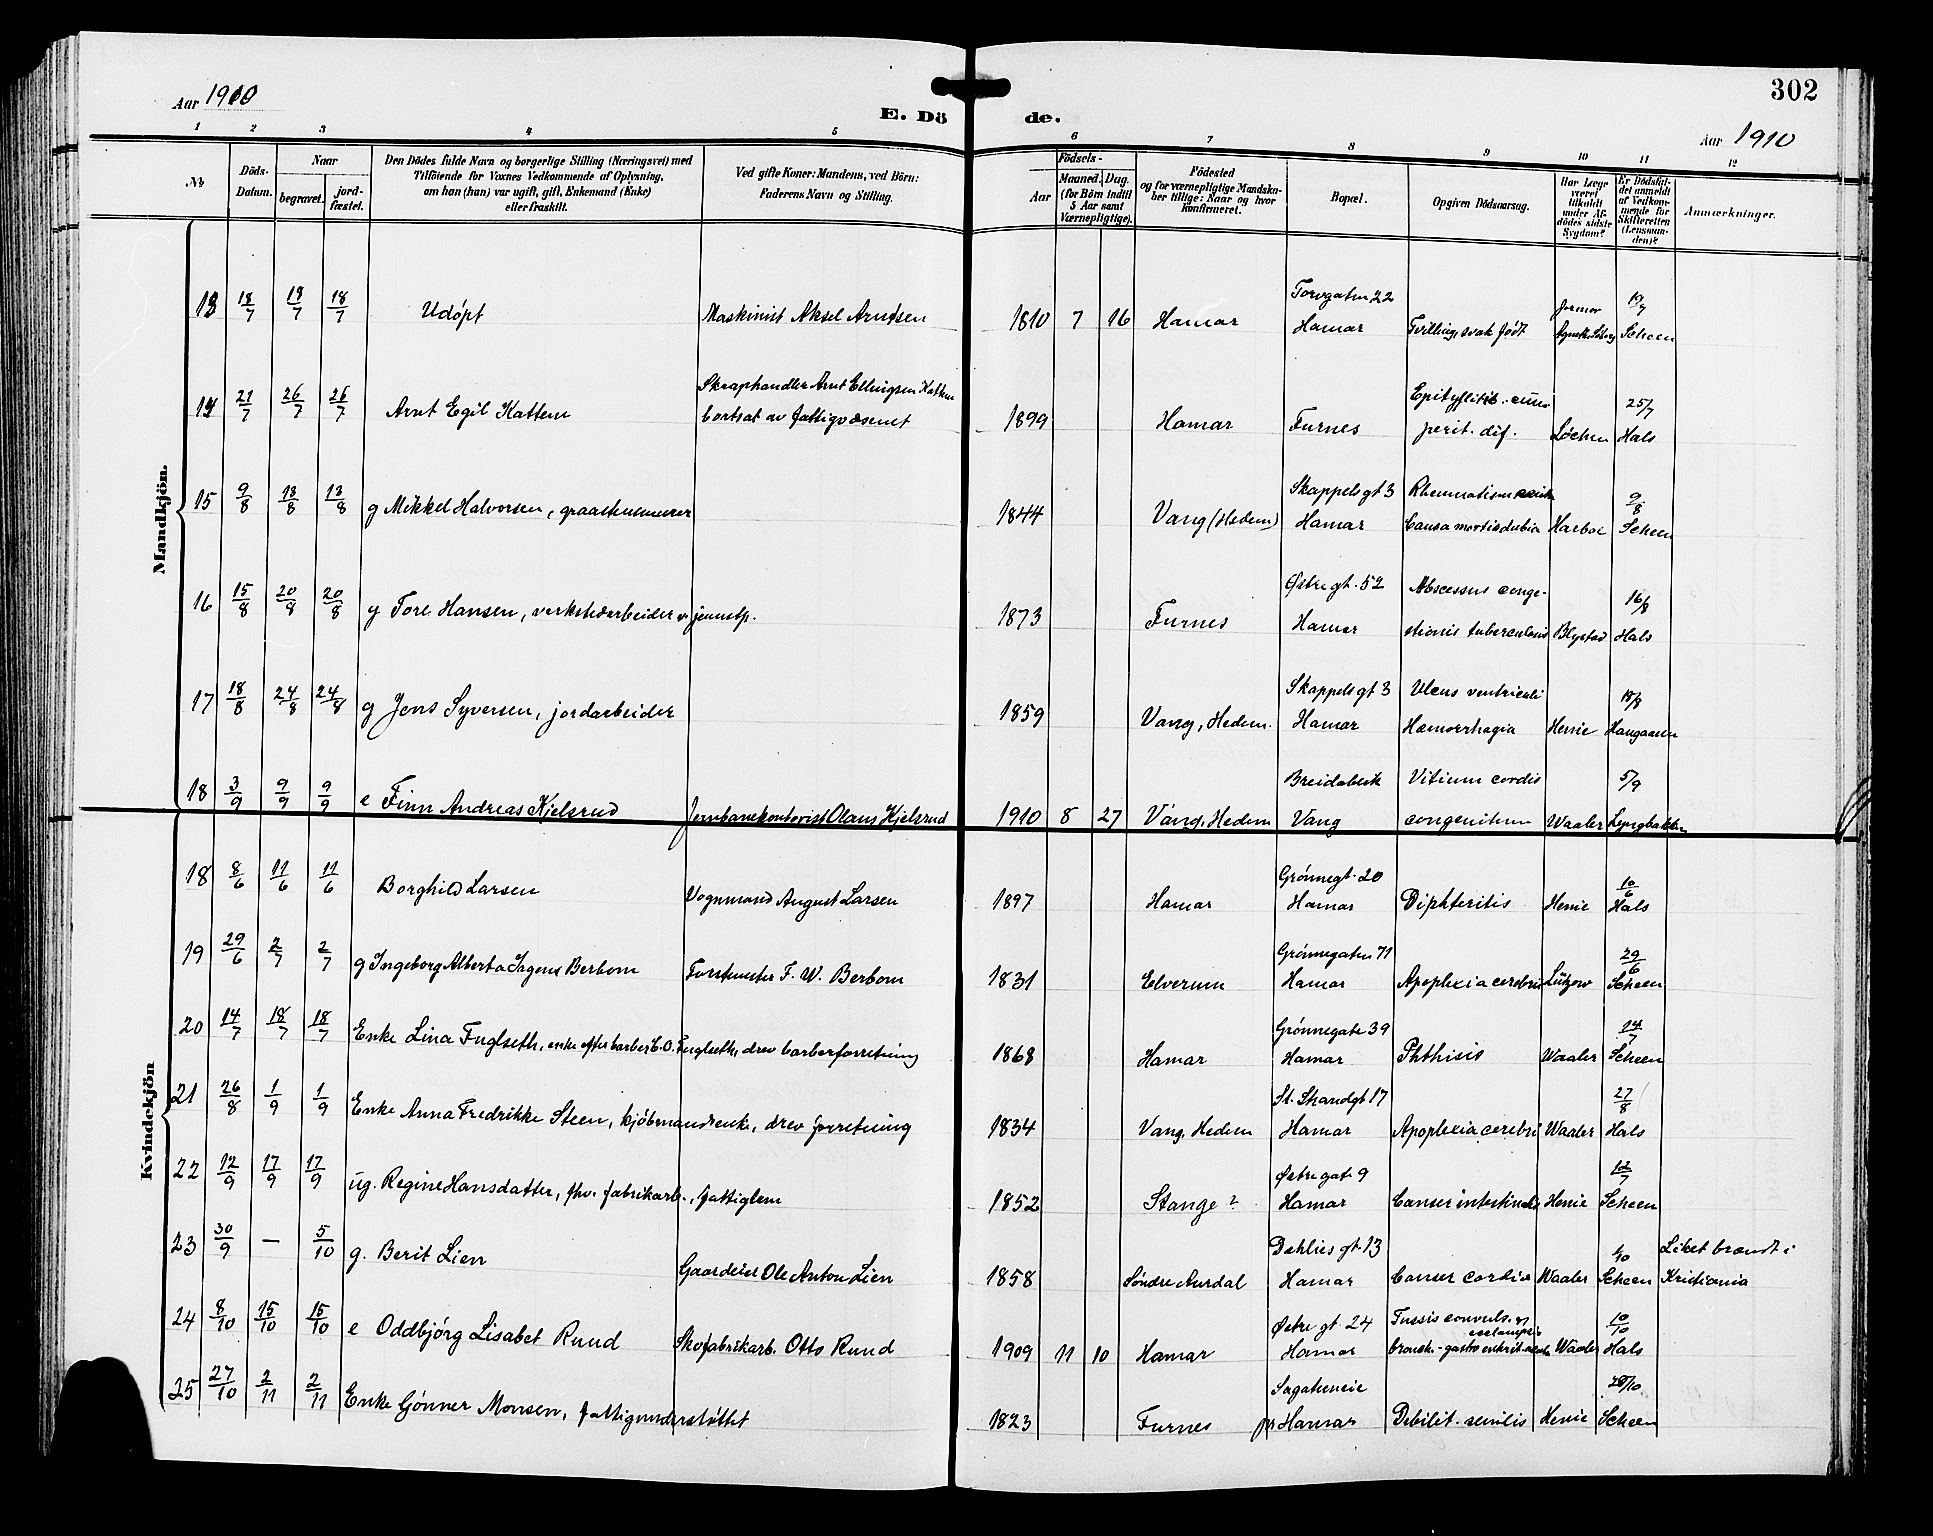 Aar 1910
E. Döde.
302
Aar 1910
1 2 3 4 5 6 7 8 9 10 11 12
No
Döds-Datum.
Naar begravet. jordfæstet.
Den Dödes fulde Navn og borgerlige Stilling (Næringsvei) med Tilföiende for Voxnes Vedkommende af Oplysning, om han (hun) var ugift, gift, Enkemand (Enke) eller fraskilt.
Ved gifte Koner: Mandens, ved Börn: Faderens Navn og Stilling.
Födsels-
Aar Maaned. Dag. (for Börn indtil 5 Aar samt Værnepligtige).
Födested og for værnepligtige Mandskaber tillige: Naar og hvor konfirmeret.
Bopæl.
Opgiven Dödsaarsag.
Har Læge været tilkaldt under Afdödes sidste Sygdom?
Er Dödsfaldet anmeldt af Vedkommende for Skifteretten (Lensmanden)?
Anmærkninger.
Mandkjön.
13 18/7 18/7 18/7 Udöpt Maskinist Aksel Arntsen 1810 7 16 Hamar Torvgaten 22 Hamar Tvilling, svak født Jormor 19/7 Scheen
14 21/7 26/7 26/7 Arnt Egil Kattem Skraphandler Arnt Ellingsen Kattem bortsat av fattigvæsenet 1899 Hamar Furnes perit. dif. Løchen 25/7 Hals
15 9/8 13/8 13/8 g Mikkel Halvorsen, graastensmurer 1844 Vang (Hedem) Skappelsgt 3 Hamar Causa mortis dubia Harboe 9/8 Scheen
16 15/8 20/8 20/8 g Tore Hansen, verkstedarbeider v jernstp. 1873 Furnes Østregt. 52 Hamar Abscessus congestionis tuberculosis Blystad 16/8 Hals
17 18/8 24/8 24/8 g Jens Syversen, jordarbeider 1859 Vang, Hedem. Skappelsgt 3 Hamar Ulcus ventriculi Hæmorrhagia Henie 18/8 Haugaasen
18 3/9 9/9 9/9 e Finn Andreas Kjelsrud Jernbanekontorist Olaus Kjelsrud 1910 8 27 Vang, Hedem Breidablik Vang Vitium cordis congenitum Waaler 5/9 Lyngbakken
Kvindekjön
18 8/6 11/6 11/6 Borghild Larsen Vognmand August Larsen 1897 Hamar Grönnegt. 20 Hamar Diphteritis Henie 10/6 Hals
19 29/6 2/7 2/7 g Ingeborg Alberta Jagens Berbom Forstmester F. W. Berbom 1831 Elverum Grönnegaten 71 Hamar Apoplexia cerebri Lützow 29/6 Scheen
20 14/7 18/7 18/7 Enke Lina Fuglseth, enke efter barber C. O. Fuglseth, drev barberforretning 1868 Hamar Grönnegate 39 Hamar Phthisis Waaler 14/7 Scheen
21 26/8 1/9 1/9 Enke Anna Fredrikke Steen, kjöbmandsenke, drev forretning 1834 Vang, Hedem St. Strandgt 17 Hamar Apoplexia cerebri Waaler 27/8 Hals
22 12/9 17/9 17/9 ug. Regine Hansdatter, fhv. fabrikarb., fattiglem 1852 Stange ? Østregate 9 Hamar Canser intestinalis Henie 12/7 Scheen
23 30/9 — 5/10 g. Berit Lien Gaardeier Ole Anton Lien 1858 Söndre Aurdal Dahlies gt. 13 Hamar Canser cordis Waaler 1/10 Scheen Liket brændt i Kristiania
24 8/10 15/10 15/10 e Oddbjörg Lisabet Ruud Skofabrikarb. Otto Ruud 1909 11 10 Hamar Østre gt. 24 Hamar Tussis convuls. og eclampsi bronch.-gastro enterit. acuta Waaler 10/10 Hals
25 27/10 2/11 2/11 Enke Gönner Monsen, fattigunderstöttet 1823 Furnes Sagatuneie pr Hamar Debilit. senilis Henie 28/10 Scheen